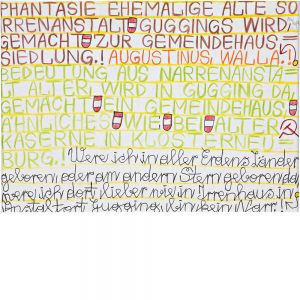 PHANTASIE EHEMALIGE ALTE SO
RRENANSTALT GUGGINGS WIRD
GEMACHT ZUR GEMEINDEHAUS
SIEDLUNG.! AUGUSTINUS, WALLA.!
BEDEUTUNG AUS NARRENANSTA
ALTER WIRD IN GUGGING DA
GEMACHT GEMEINDEHAUS
ÄHNLICHES WIE BEI ALTER
KASERNE IN KLOSTERNEU
BURG.! Were ich in aller Erdens Länder
geboren, oder am andern Stern geboren da
were ich dort lieber nie in Irrenhaus in
Anstalt fort Gugging, bin kein Narr!